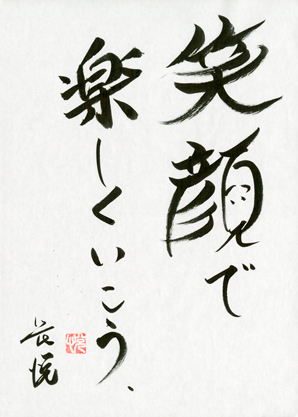 笑顔で
楽しくいこう、